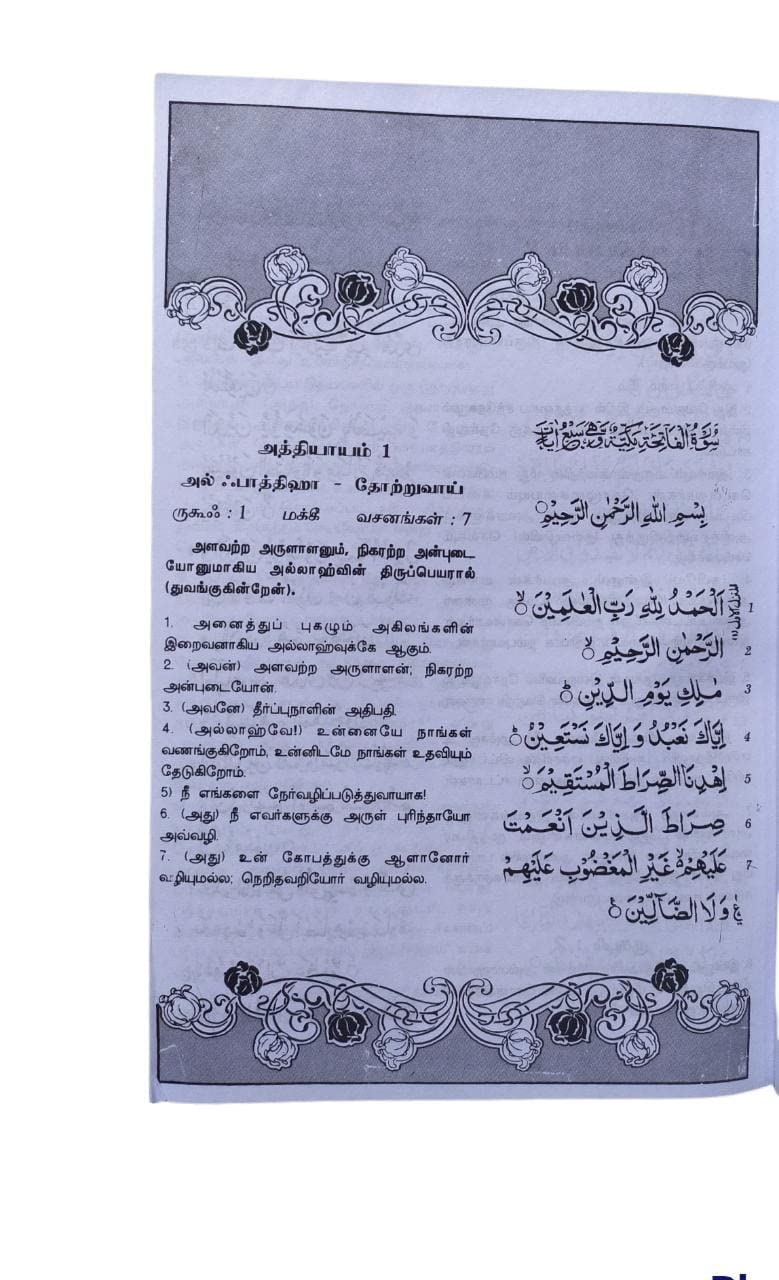 அத்தியாயம் 1
அல் ஃபாத்திஹா - தோற்றுவாய்
ருகூஃ : 1 மக்கீ வசனங்கள் : 7
அளவற்ற அருளாளனும், நிகரற்ற அன்புடை
யோனுமாகிய அல்லாஹ்வின் திருப்பெயரால்
(துவங்குகின்றேன்).
1. அனைத்துப் புகழும் அகிலங்களின்
இறைவனாகிய அல்லாஹ்வுக்கே ஆகும்.
2. (அவன்) அளவற்ற அருளாளன்; நிகரற்ற
அன்புடையோன்.
3. (அவனே) தீர்ப்புநாளின் அதிபதி.
4. (அல்லாஹ்வே!) உன்னையே நாங்கள்
வணங்குகிறோம், உன்னிடமே நாங்கள் உதவியும்
தேடுகிறோம்.
5) நீ எங்களை நேர்வழிப்படுத்துவாயாக!
6. (அது) நீ எவர்களுக்கு அருள் புரிந்தாயோ
அவ்வழி.
7. (அது) உன் கோபத்துக்கு ஆளானோர்
வழியுமல்ல; நெறிதவறியோர் வழியுமல்ல.
سُوْرَةُ الْفَاتِحَةِ مَكِّيَّةٌ وَّهِیَ سَبْعُ اٰيَاتٍ
بِسْمِ اللّٰهِ الرَّحْمٰنِ الرَّحِيْمِ
اَلْحَمْدُ لِلّٰهِ رَبِّ الْعٰلَمِيْنَ ۙ 1
الرَّحْمٰنِ الرَّحِيْمِ ۙ 2
مٰلِكِ يَوْمِ الدِّيْنِ ؕ 3
اِيَّاكَ نَعْبُدُ وَ اِيَّاكَ نَسْتَعِيْنُ ؕ 4
اِهْدِنَا الصِّرَاطَ الْمُسْتَقِيْمَ ۙ 5
صِرَاطَ الَّذِيْنَ اَنْعَمْتَ 6
عَلَيْهِمْ ۙ غَيْرِ الْمَغْضُوْبِ عَلَيْهِمْ 7
وَلَا الضَّآلِّيْنَ